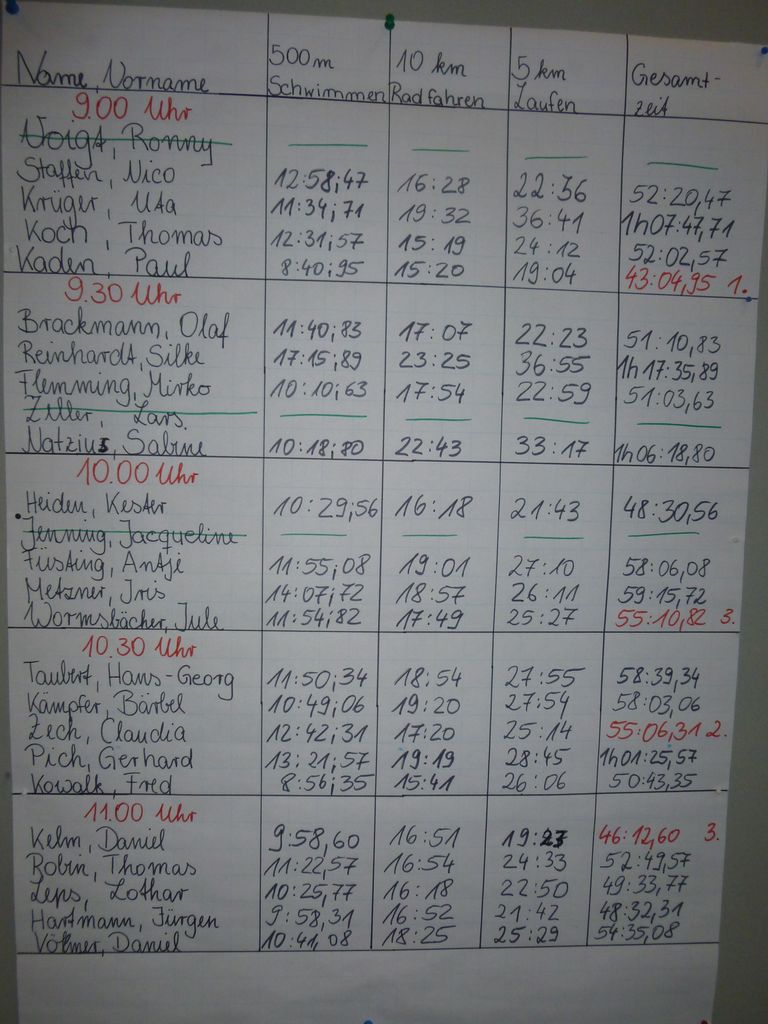 Name, Vorname 500m Schwimmen 10 km Radfahren 5 km Laufen Gesamt-zeit
9.00 Uhr
Voigt, Ronny
Staffen, Nico 12:58;47 16:28 22:36 52:20,47
Krüger, Uta 11:34;71 19:32 36:41 1h07:47,71
Koch, Thomas 12:31;57 15:19 24:12 52:02,57
Kaden, Paul 8:40;95 15:20 19:04 43:04,95 1.
9.30 Uhr
Brackmann, Olaf 11:40;83 17:07 22:23 51:10,83
Reinhardt, Silke 17:15;89 23:25 36:55 1h17:35,89
Flemming, Mirko 10:10;63 17:54 22:59 51:03,63
Ziller, Lars
Natzius, Sabine 10:18;80 22:43 33:17 1h06:18,80
10.00 Uhr
Heiden, Kester 10:29;56 16:18 21:43 48:30,56
Jenning, Jacqueline
Füsting, Antje 11:55;08 19:01 27:10 58:06,08
Metzner, Iris 14:07;72 18:57 26:11 59:15,72
Wormsbächer, Jule 11:54;82 17:49 25:27 55:10,82 3.
10.30 Uhr
Taubert, Hans-Georg 11:50;34 18:54 27:55 58:39,34
Kämpfer, Bärbel 10:49;06 19:20 27:54 58:03,06
Zech, Claudia 12:42;31 17:20 25:14 55:06,31 2.
Pich, Gerhard 13:21;57 19:19 28:45 1h01:25,57
Kowalk, Fred 8:56;35 15:41 26:06 50:43,35
11.00 Uhr
Kelm, Daniel 9:58,60 16:51 19:23 46:12,60 3.
Robin, Thomas 11:22,57 16:54 24:33 52:49,57
Leps, Lothar 10:25,77 16:18 22:50 49:33,77
Hartmann, Jürgen 9:58,31 16:52 21:42 48:32,31
Völlmer, Daniel 10:41,08 18:25 25:29 54:35,08